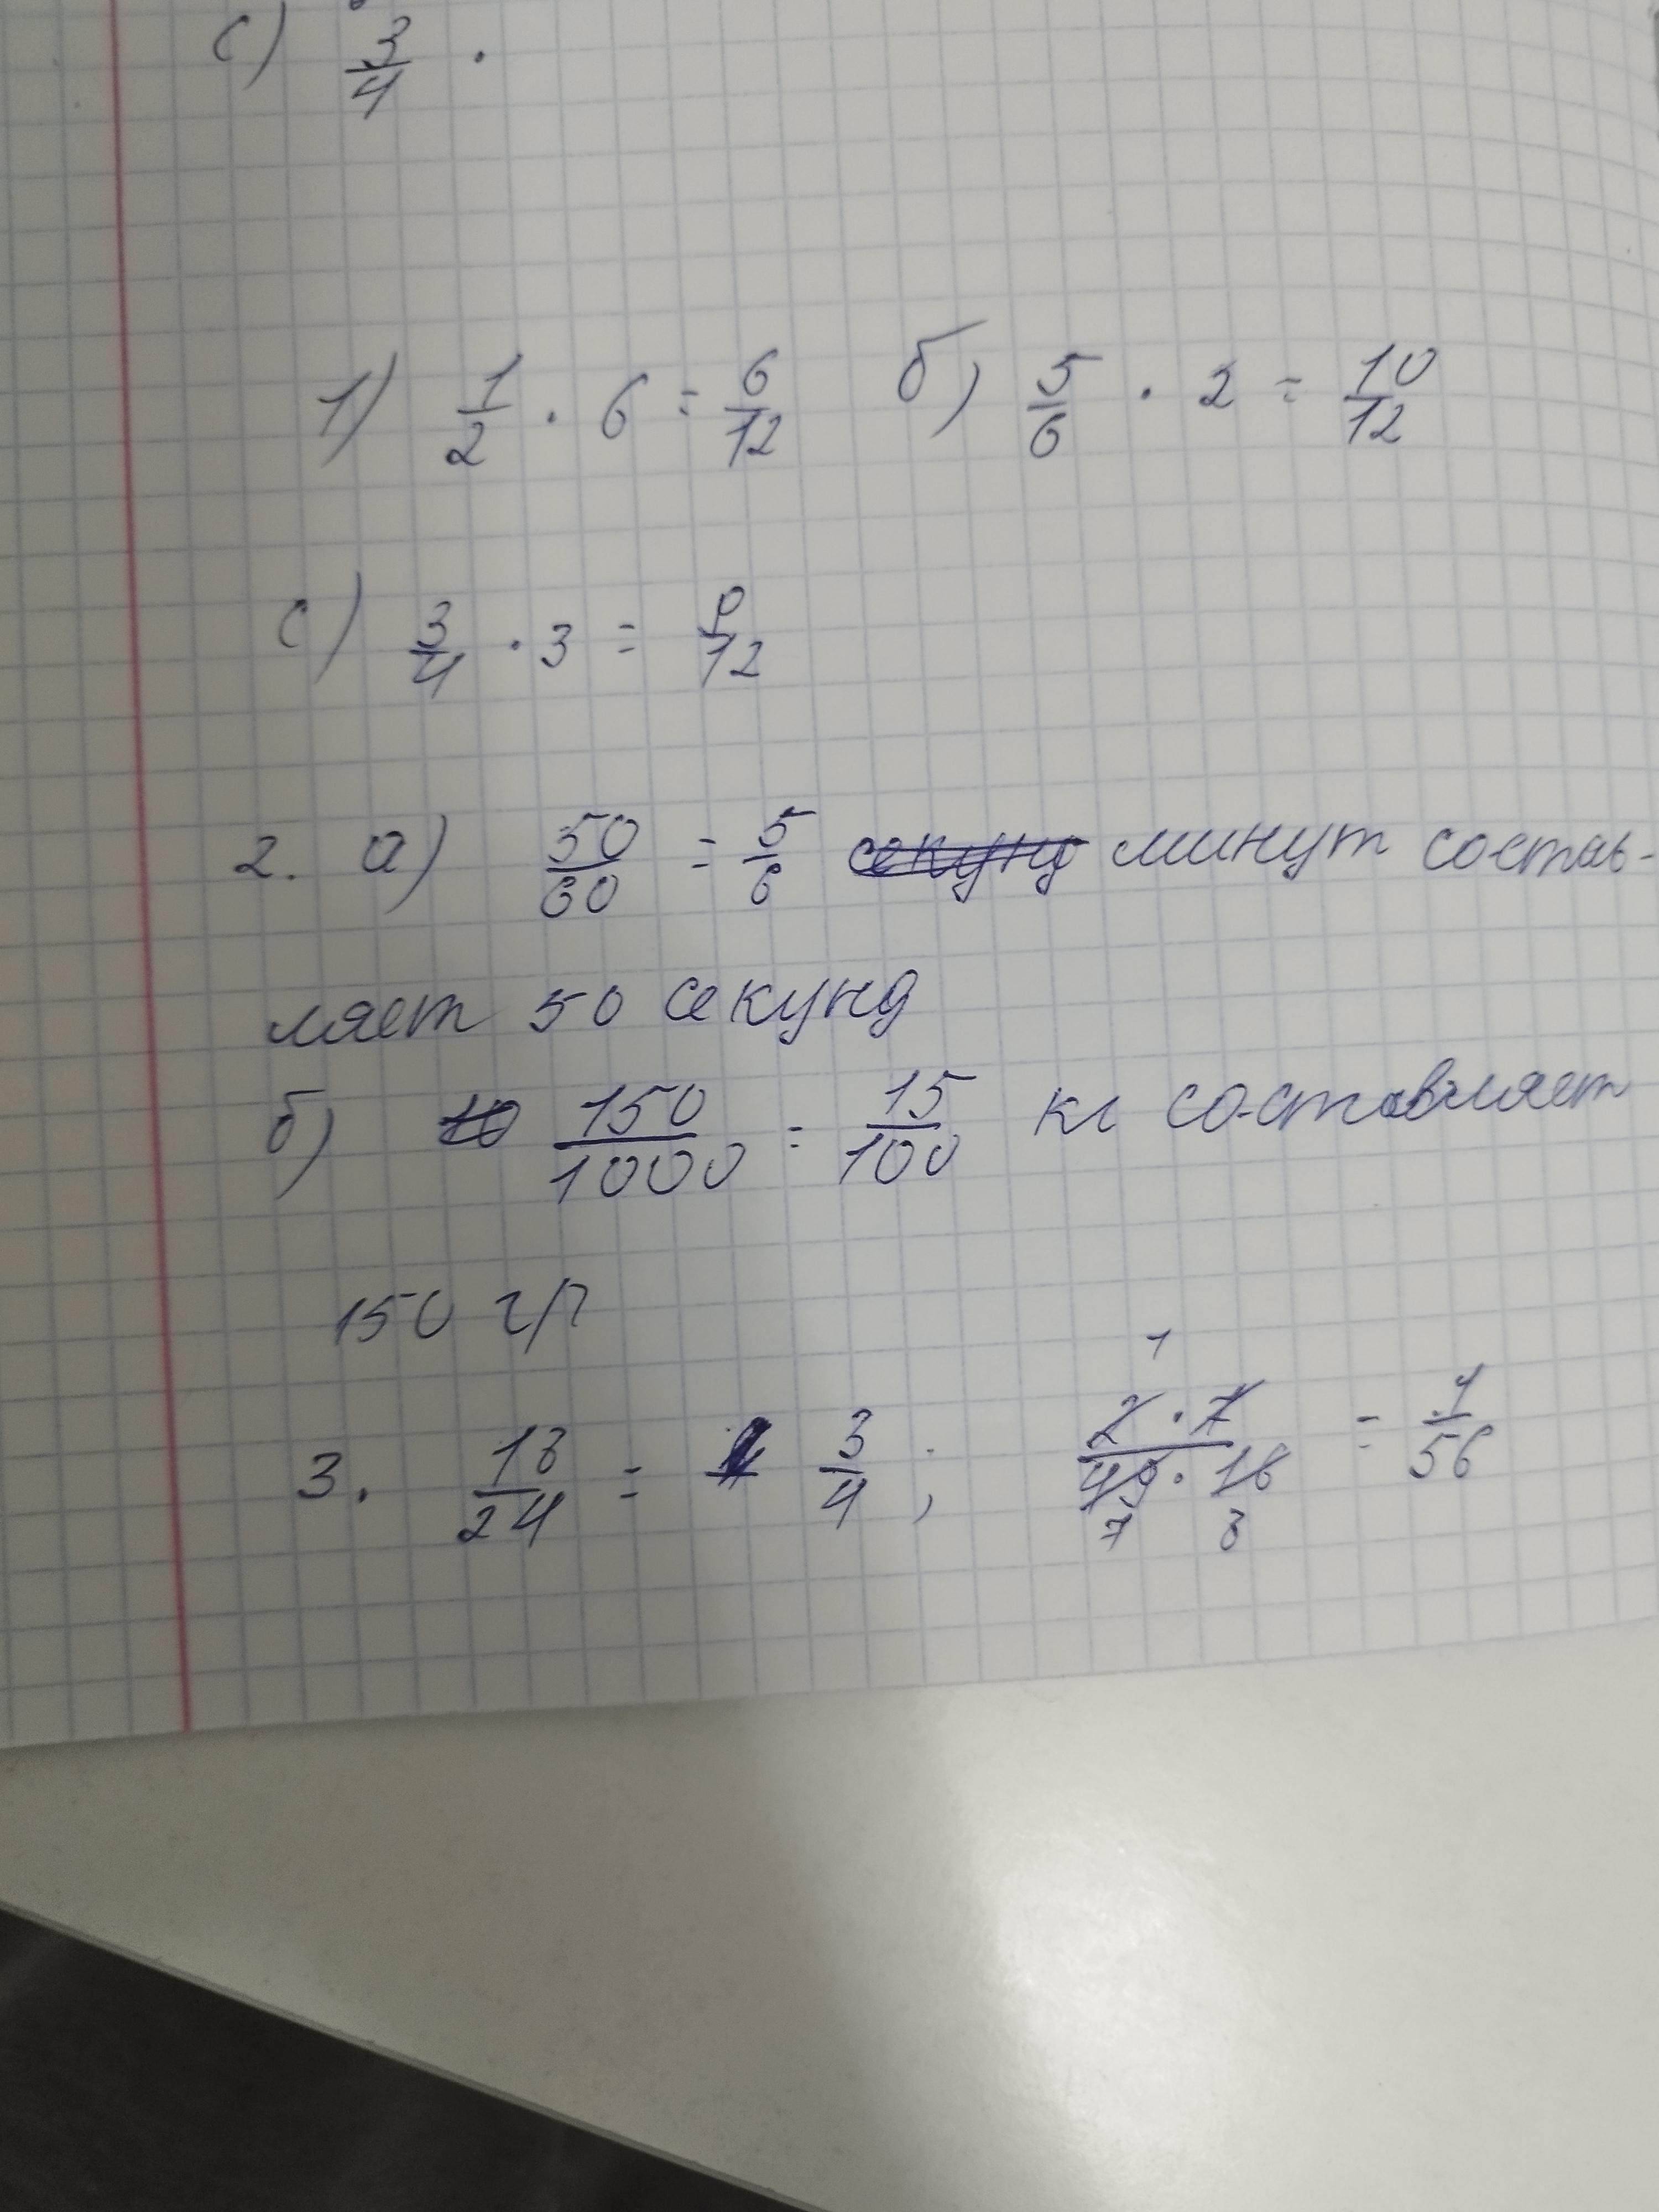 с) 3/4 ·
1) 1/2 · 6 = 6/12 б) 5/6 · 2 = 10/12
с) 3/4 · 3 = 9/12
2. а) 50/60 = 5/6 секунд минут состав-
ляет 50 секунд
б) 10 150/1000 = 15/100 кг составляет
150 гр
1
3. 18/24 = 3/4 ; 2·7/49·16 = 1/56
7 8